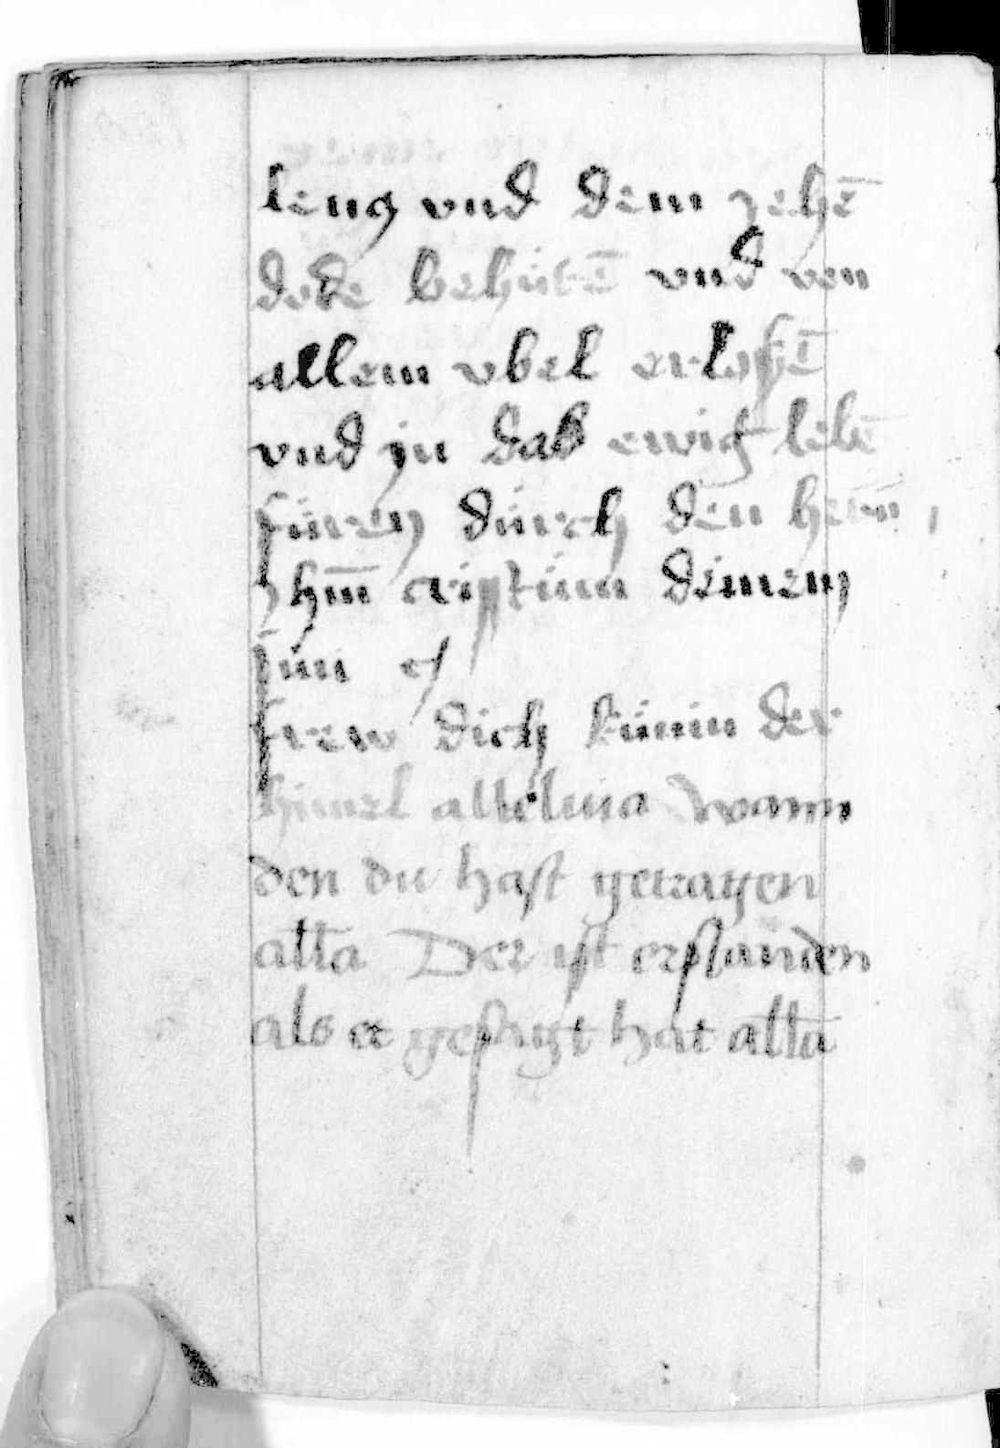 leng vnd dem gehē
dode behútē vnd von
allem vbel erlosē
vnd in das ewig lebē
füren dúrch den herñ
ihm̄ cristúm deinen
sún
frew dich kúnin der
himel alleluia wann
den du hast getragen
alla Der ist erstanden
als er gesagt hat alla